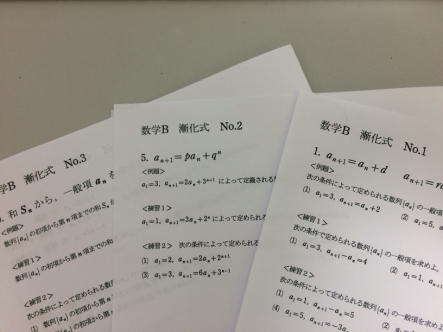 数学B 漸化式 No.3
和 Sₙ から、一般項 aₙ
<例題>
数列{aₙ}の初項から第n項までの和Sₙ
<練習1>
数列{aₙ}の初項から第n項までの
<練習2>
次の条件によって定められる数
(1) 数列{aₙ}の初項から第n
(2) 数列{aₙ}の初項から
数学B 漸化式 No.2
5. aₙ₊₁=paₙ+qⁿ
<例題>
a₁=3, aₙ₊₁=2aₙ+3ⁿ⁺¹ によって定義される
<練習1>
a₁=1, aₙ₊₁=3aₙ+2ⁿ によって定め
<練習2> 次の条件によって
(1) a₁=2, aₙ₊₁=2aₙ+2ⁿ⁺¹
(3) a₁=3, aₙ₊₁=6aₙ+3ⁿ⁻¹
数学B 漸化式 No.1
1. aₙ₊₁=aₙ+d aₙ₊₁=r
<例題>
次の条件によって定められる数列{aₙ}の一般項
(1) a₁=3, aₙ₊₁=aₙ+2 (2) a₁=5,
<練習1>
次の条件で定められる数列{aₙ}の一般項を求めよ
(1) a₁=3, aₙ₊₁-aₙ=4 (2) a₁=1,
<練習2>
次の条件によって定められる数列{aₙ}の一般項を
(1) a₁=1, aₙ₊₁-aₙ=5
(4) a₁=5, aₙ₊₁=-3aₙ